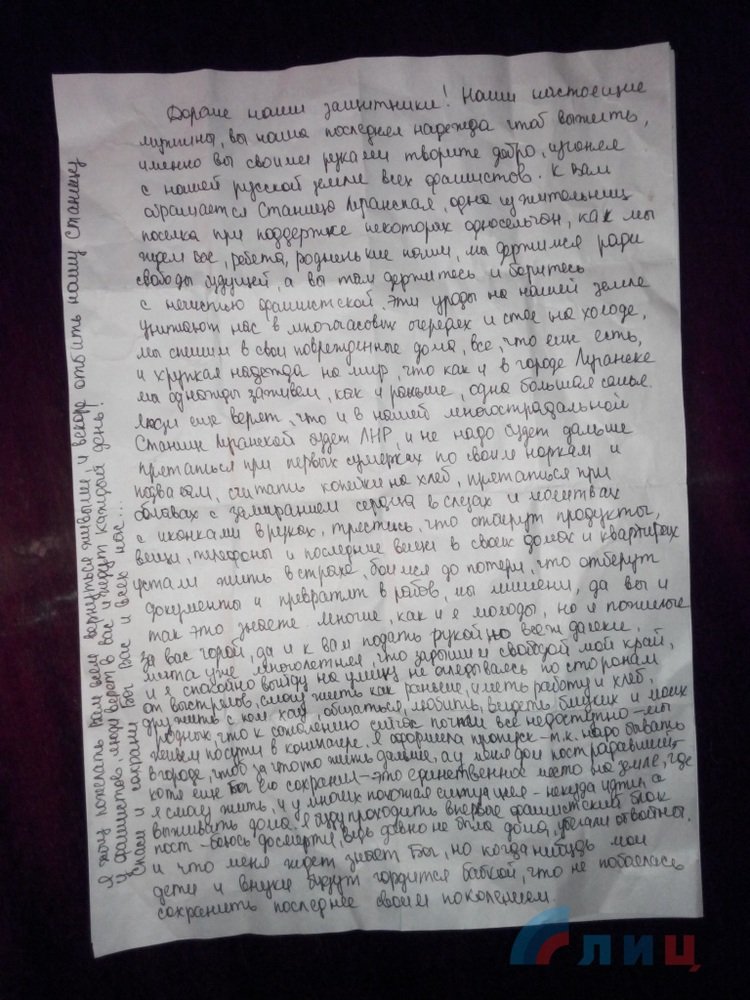 Дорогие наши защитники! Наши настоещие
мужчины, вы наша последнея надежда чтоб выжить,
именно вы своими руками творите добро, изгоняя
с нашей русской земле всех фашистов. К вам
обращается Станицю Луганская, одна из жительниц
поселка при поддержке некоторах односельчан, как мы
ждем вас, ребята, родненькие наши, мы держимся ради
свободы будущей, а вы там держитесь и боритесь
с нечистью фашистской. Эти уроды на нашей земле
унижают нас в многочасовых очередех и стоя на холоде,
мы спешим в свои поврежденные дома, все, что еще есть,
и хрупкая надежда на мир, что как и в городе Луганске
мы однажды заживем, как и раньше, одна большая семья.
Люди еще верет, что и в нашей многострадальной
Станице Луганской будет ЛНР, и не надо будет дальше
прятаться при первых сумерках по своим норкам и
подвалам, считать копейки на хлеб, прятаться при
облавах с замиранием сердца в слезах и молитвах
с иконками в руках, трястись, что отберут продукты,
вещи, телефоны и последние вещи в своих домах и квартирах
устали жить в страхе, боимся до потери, что отберут
документы и превратят в рабов, мы мишени, да вы и
так это знаете. Многие, как и я молоды, но и пожилые
за вас горой, да и к вам подать рукой, но все ж далеки,
мечта уже многолетнея, что задышит свободой мой край,
и я спокойно выйду на улицу не огледываясь по сторонам
от выстрелов, смогу жить как раньше, иметь работу и хлеб,
дружить с кем хочу, общаться, любить, видеть близких и моих
родных, что к сожалению сейчас почти все недоступно - мы
живем по сути в концлагере. Я оформила пропуск - т.к. надо бывать
в городе, чтоб за что то жить дальше, а у меня дом пострадавший,
хотя еще Бог его сохранил - это единственное место на земле, где
я смогу жить, и у многих похожая ситуация - некуда идти, а
выживать дома. Я буду проходить впервые фашистский блок
пост - боюсь до смерти, ведь давно не была дома, убегали от войны.
и что меня ждет знает Бог, но когда нибудь мои
дети и внуки будут гордится бабкой, что не побоялась
сохранить последнее своим поколением.
Я хочу пожелать вам всем вернуться живыми, и вскоре отбить нашу Станицу
у фашистов, люди верет в вас и ждут каждый день!
Спаси и сохрани Бог Вас и всех нас...
ЛИЦ